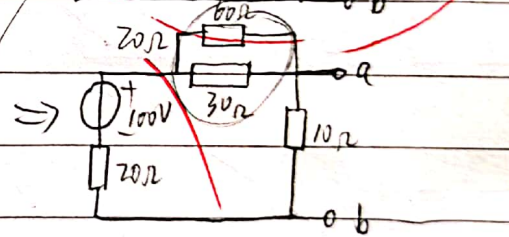 60Ω
20Ω
a
30Ω
⇒
+
100V
-
10Ω
20Ω
b